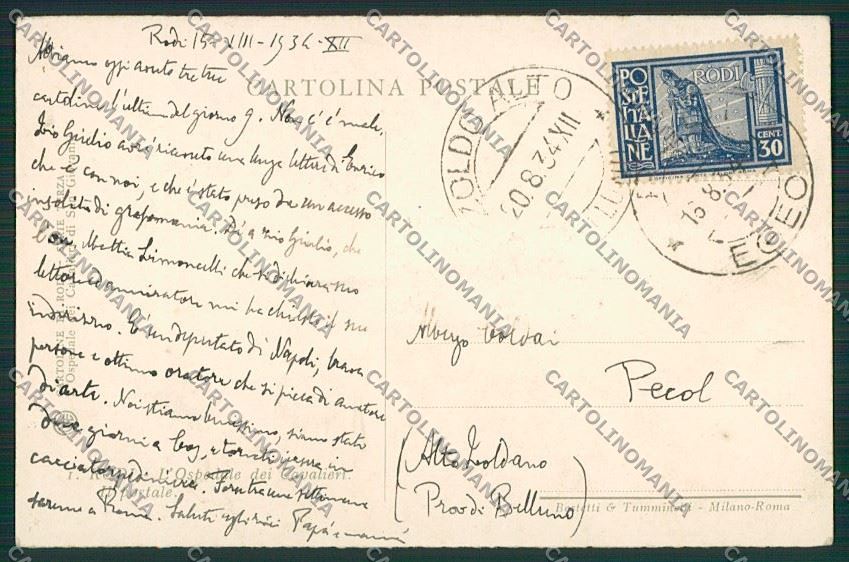 Rodi 15-VIII-1934-XII
CARTOLINA POSTALE
Abbiamo oggi avuto tre tue
cartoline, l'ultima del giorno 9. Non c'è male.
Zio Giulio avrà ricevuto una lunga lettera di Enrico
che è con noi, e che è stato preso da un accesso
insolito di grafomania. Di' a zio Giulio, che
l'on. Mattia Limoncelli che si dichiara suo
lettore e ammiratore mi ha chiesto il suo
indirizzo. È un deputato di Napoli, brava
persona e ottimo oratore che si picca di amatore
d'arte. Noi stiamo benissimo, siamo stati
due giorni a Coo, e tornati ieri in
cacciatorpediniere. Fra una settimana
saremo a Roma. Saluti agli zii Papà e mammà
1. RODI - L'Ospedale dei Cavalieri.
Il portale.
ZOLDO ALTO
20.8.34.XII
POSTE ITALIANE
RODI
CENT. 30
EGEO
Albergo Coldai
Pecol
(Alto Zoldano
Prov di Belluno)
Bestetti & Tumminelli - Milano-Roma
CARTOLINOMANIA